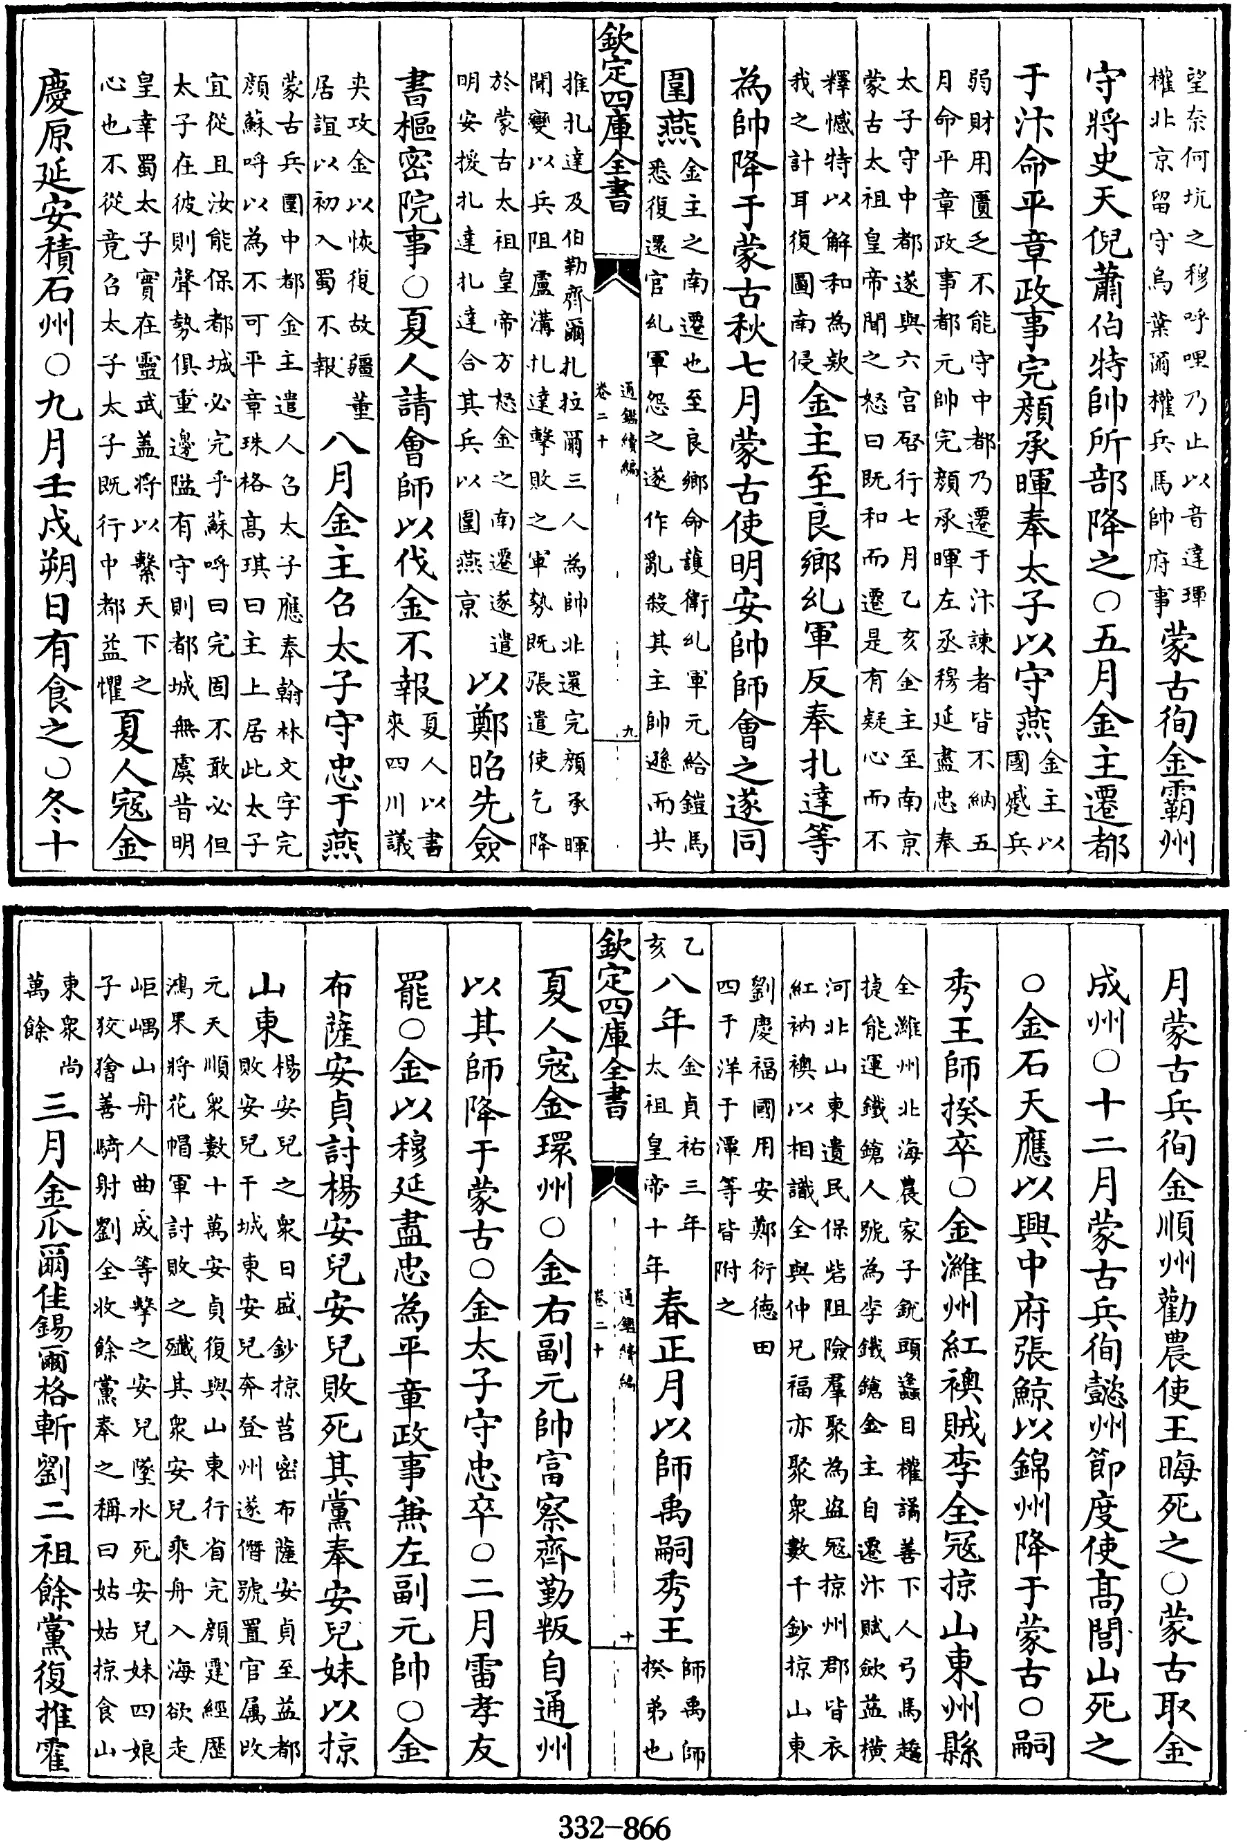 望奈何坑之穆呼哩乃止以音達琿
權北京留守烏葉爾權兵馬帥府事
蒙古徇金霸州
守將史天倪蕭伯特帥所部降之○五月金主遷都
于汴命平章政事完顔承暉奉太子以守燕
金主以
國蹙兵
弱財用匱乏不能守中都乃遷于汴諫者皆不納五
月命平章政事都元帥完顔承暉左丞穆延盡忠奉
太子守中都遂與六宮啓行七月乙亥金主至南京
蒙古太祖皇帝聞之怒曰既和而遷是有疑心而不
釋憾特以解和為欵
我之計耳復圖南侵
金主至良鄉乣軍反奉扎達等
為帥降于蒙古秋七月蒙古使明安帥師會之遂同
圍燕
金主之南遷也至良鄉命護衛乣軍元給鎧馬
悉復還官乣軍怨之遂作亂殺其主帥遜而共
欽定四庫全書
通鑑續編
卷二十
九
推扎達及伯勒齊爾扎拉爾三人為帥北還完顔承暉
聞變以兵阻盧溝扎達擊敗之軍勢既張遣使乞降
於蒙古太祖皇帝方怒金之南遷遂遣
明安援扎達扎達合其兵以圍燕京
以鄭昭先僉
書樞密院事○夏人請會師以伐金不報
夏人以書
來四川議
夾攻金以恢復故疆董
居誼以初入蜀不報
八月金主召太子守忠于燕
蒙古兵圍中都金主遣人召太子應奉翰林文字完
顔蘇呼以為不可平章珠格高琪曰主上居此太子
宜從且汝能保都城必完乎蘇呼曰完固不敢必但
太子在彼則聲勢俱重邊隘有守則都城無虞昔明
皇幸蜀太子實在靈武蓋將以繫天下之
心也不從竟召太子太子既行中都益懼
夏人寇金
慶原延安積石州○九月壬戌朔日有食之○冬十
月蒙古兵徇金順州勸農使王晦死之○蒙古取金
成州○十二月蒙古兵徇懿州節度使高閭山死之
○金石天應以興中府張鯨以錦州降于蒙古○嗣
秀王師揆卒○金濰州紅襖賊李全寇掠山東州縣
全濰州北海農家子銳頭蠭目權譎善下人弓馬趫
捷能運鐵鎗人號為李鐵鎗金主自遷汴賦歛益橫
河北山東遺民保砦阻險羣聚為盜寇掠州郡皆衣
紅衲襖以相識全與仲兄福亦聚衆數千鈔掠山東
劉慶福國用安鄭衍德田
四于洋于潭等皆附之
乙
亥
八年
金貞祐三年
太祖皇帝十年
春正月以師禹嗣秀王
師禹師
揆弟也
欽定四庫全書
通鑑續編
卷二十
十
夏人寇金環州○金右副元帥富察齊勤叛自通州
以其師降于蒙古○金太子守忠卒○二月雷孝友
罷○金以穆延盡忠為平章政事兼左副元帥○金
布薩安貞討楊安兒安兒敗死其黨奉安兒妹以掠
山東
楊安兒之衆日盛鈔掠莒密布薩安貞至益都
敗安兒于城東安兒奔登州遂僭號置官属改
元天順衆數十萬安貞復與山東行省完顔霆經歷
鴻果將花帽軍討敗之殲其衆安兒乘舟入海欲走
岠嵎山舟人曲成等擊之安兒墜水死安兒妹四娘
子狡獪善騎射劉全收餘黨奉之稱曰姑姑掠食山
東衆尚
萬餘
三月金瓜爾佳錫爾格斬劉二祖餘黨復推霍
332-866